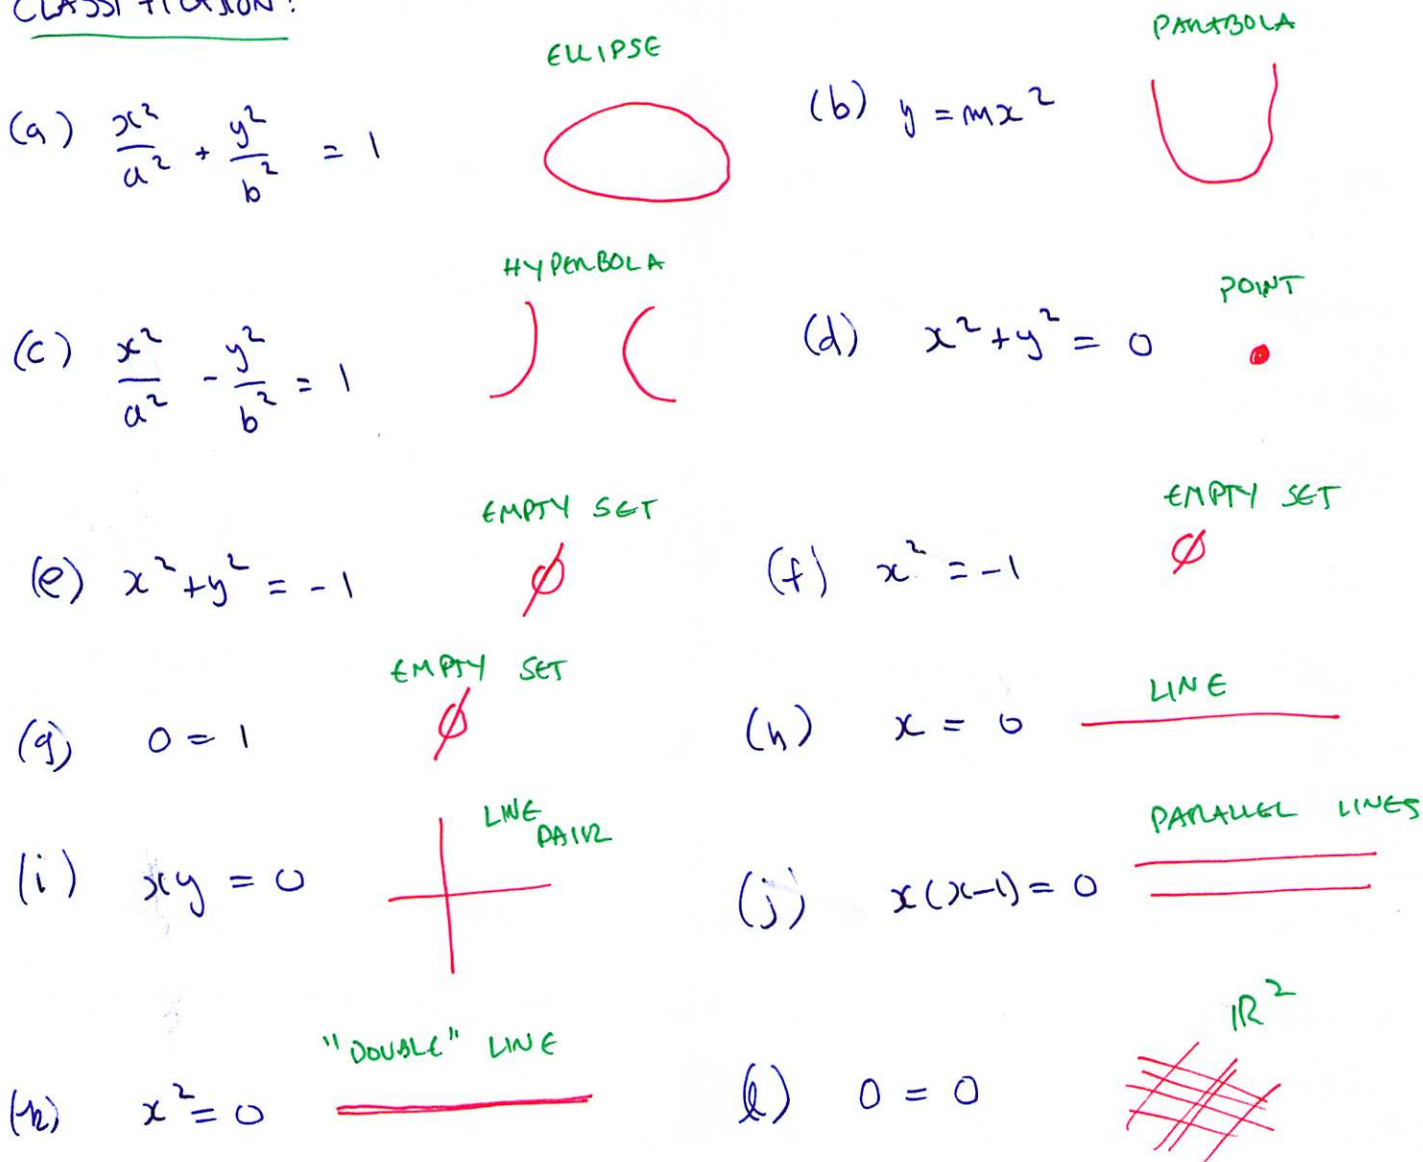 CLASSIFICATION:
(a) x²/a² + y²/b² = 1 ELLIPSE
(b) y = mx² PARABOLA
(c) x²/a² - y²/b² = 1 HYPERBOLA
(d) x² + y² = 0 POINT
(e) x² + y² = -1 EMPTY SET ∅
(f) x² = -1 EMPTY SET ∅
(g) 0 = 1 EMPTY SET ∅
(h) x = 0 LINE
(i) xy = 0 LINE PAIR
(j) x(x-1) = 0 PARALLEL LINES
(k) x² = 0 "DOUBLE" LINE
(l) 0 = 0 ℝ²